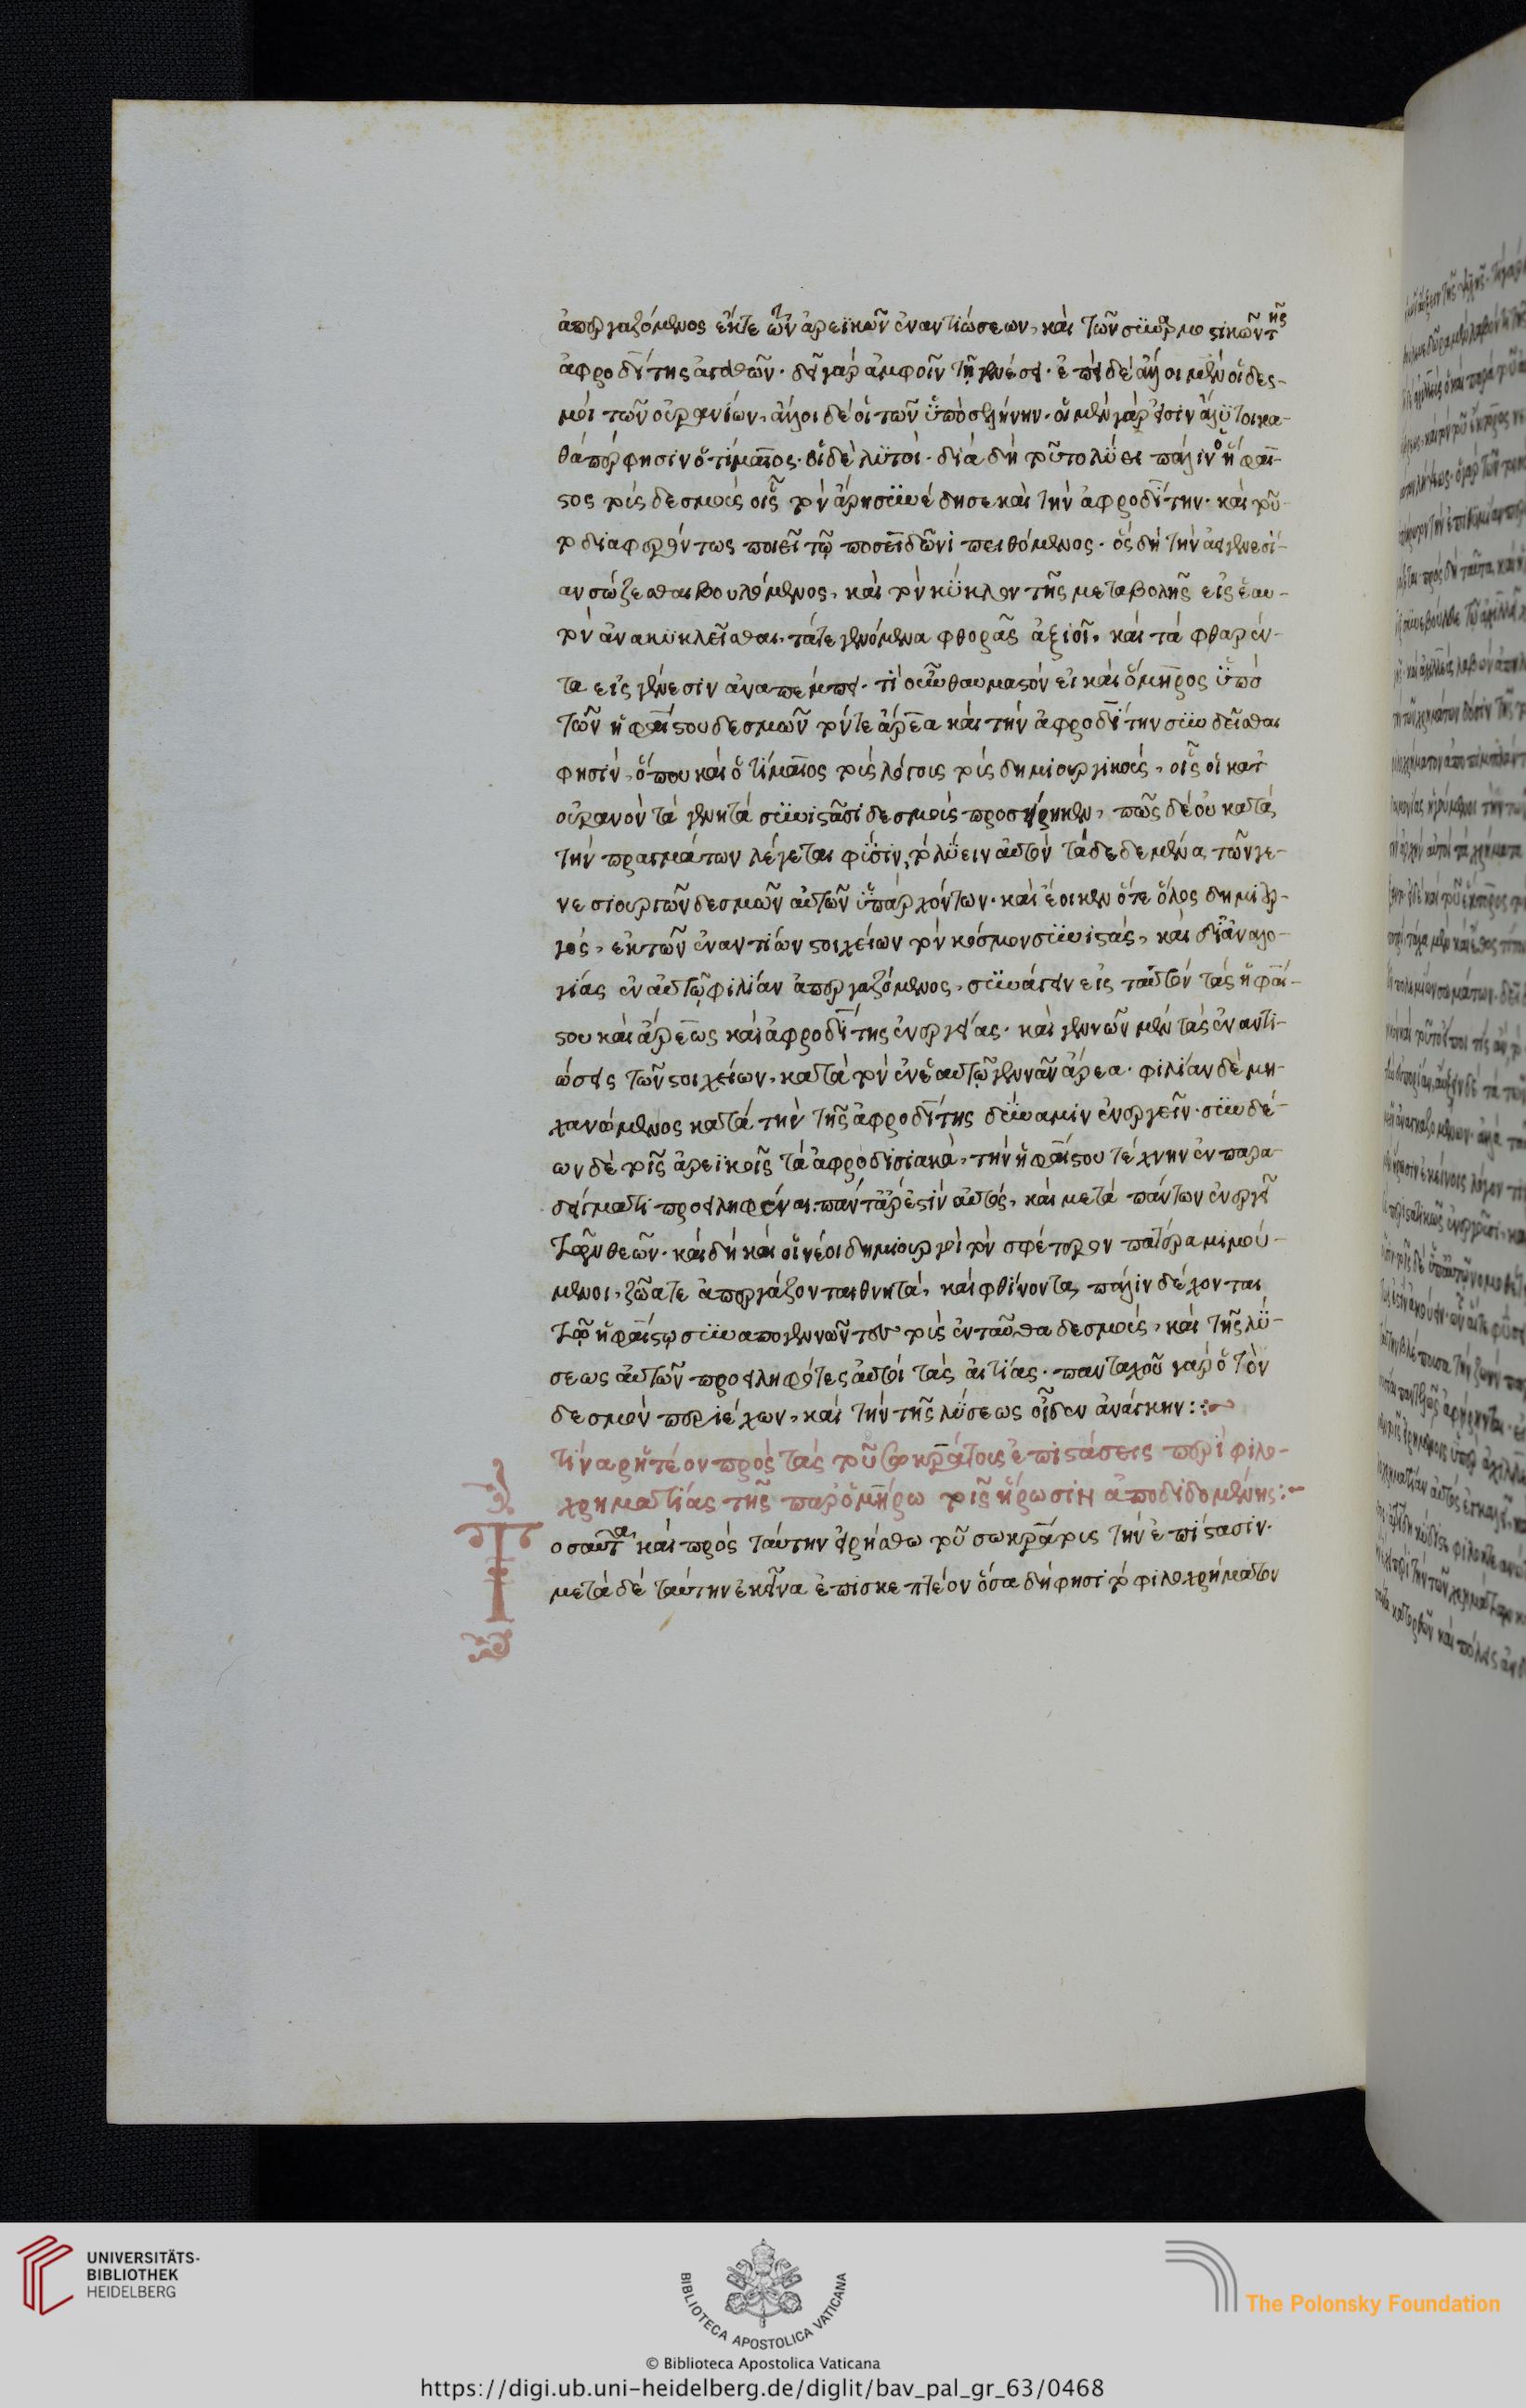 ἀπεργαζόμενος ἔκτε τῶν ἀρεϊκῶν ἐναντιώσεων, καὶ τῶν συναρμοστικῶν τῆς
ἀφροδίτης ἀγαθῶν· δεῖ γὰρ ἀμφοῖν τῇ γενέσει· ἐπεὶ δὲ ἄλλοι μὲν οἱ δεσ-
μοὶ τῶν οὐρανίων, ἄλλοι δὲ οἱ τῶν ὑπὸ σελήνην· οἱ μὲν γάρ εἰσιν ἄλυτοι κα-
θάπερ φησὶν ὁ τίμαιος· οἱ δὲ λυτοί· διὰ δὴ τοῦτο λύει πάλιν ὁ ἥφαι-
στος τοῖς δεσμοῖς οἷς τὸν ἄρη συνέδησε καὶ τὴν ἀφροδίτην· καὶ τοῦ-
το διαφερόντως ποιεῖ τῷ ποσειδῶνι πειθόμενος· ὃς δὴ τὴν ἀειγενεσί-
αν σώζεσθαι βουλόμενος, καὶ τὸν κύκλον τῆς μεταβολῆς εἰς ἑαυ-
τὸν ἀνακυκλεῖσθαι, τάτε γενόμενα φθορᾶς ἀξιοῖ, καὶ τὰ φθαρέν-
τα εἰς γένεσιν ἀναπέμπει· τί οὖν θαυμαστὸν εἰ καὶ ὅμηρος ὑπὸ
τῶν ἡφαίστου δεσμῶν τόντε ἄρεα καὶ τὴν ἀφροδίτην συνδεῖσθαι
φησίν, ὅπου καὶ ὁ τίμαιος τοῖς λόγοις τοῖς δημιουργικοῖς, οἷς οἱ κατ
οὐρανὸν τὰ γενητὰ συνιστᾶσι δεσμοὺς προσείρηκεν, πῶς δὲ οὐ κατὰ
τὴν πραγμάτων λέγεται φύσιν, τὸ λύειν αὐτὸν τὰ δεδεμένα, τῶν γε-
νεσιουργῶν δεσμῶν αὐτῶν ὑπαρχόντων· καὶ ἔοικεν ὅτε ὅλος δημιουρ-
γός, ἐκ τῶν ἐναντίων στοιχείων τὸν κόσμον συνιστάς, καὶ δι' ἀναλο-
γίας ἐν αὐτῷ φιλίαν ἀπεργαζόμενος, συνάγειν εἰς ταὐτὸν τὰς ἡφαί-
στου καὶ ἄρεως καὶ ἀφροδίτης ἐνεργείας· καὶ γεννῶν μὲν τὰς ἐναντι-
ώσεις τῶν στοιχείων, κατὰ τὸν ἐν ἑαυτῷ γεννᾶν ἄρεα· φιλίαν δὲ μη-
χανώμενος κατὰ τὴν τῆς ἀφροδίτης δύναμιν ἐνεργεῖν· συνδέ-
ων δὲ τοῖς ἀρεϊκοῖς τὰ ἀφροδισιακά, τὴν ἡφαίστου τέχνην ἐν παρα-
δείγματι προειληφέναι· πάντα γάρ ἐστιν αὐτός, καὶ μετὰ πάντων ἐνεργεῖ
τῶν θεῶν· καὶ δὴ καὶ οἱ νέοι δημιουργοὶ τὸν σφέτερον πατέρα μιμού-
μενοι, ζῶάτε ἀπεργάζονται θνητά, καὶ φθίνοντα πάλιν δέχονται
τῷ ἡφαίστῳ συναπογεννῶντες τοὺς ἐνταῦθα δεσμούς, καὶ τῆς λύ-
σεως αὐτῶν προειληφότες αὐτοὶ τὰς αἰτίας· πανταχοῦ γὰρ ὁ τὸν
δεσμὸν περιέχων, καὶ τὴν τῆς λύσεως οἶδεν ἀνάγκην:
τίνα ῥητέον πρὸς τὰς τοῦ σωκράτους ἐπιστάσεις περὶ φιλο-
χρηματίας τῆς παρ' ὁμήρῳ τοῖς ἥρωσιν ἀποδιδομένης:
Τοσαῦτα καὶ πρὸς ταύτην εἰρήσθω τοῦ σωκράτους τὴν ἐπίστασιν·
μετὰ δὲ ταύτην ἐκεῖνα ἐπισκεπτέον ὅσα δή φησι τὸ φιλοχρήματον
UNIVERSITÄTS-
BIBLIOTHEK
HEIDELBERG
BIBLIOTECA APOSTOLICA VATICANA
The Polonsky Foundation
© Biblioteca Apostolica Vaticana
https://digi.ub.uni-heidelberg.de/diglit/bav_pal_gr_63/0468